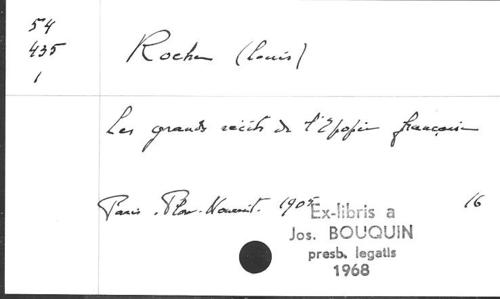 54
435
1
Roche (Louis)
Les grands récits de l'Épopée française
Paris. Plon-Nourrit. 16
Ex-libris a
Jos. BOUQUIN
presb. legatis
1968